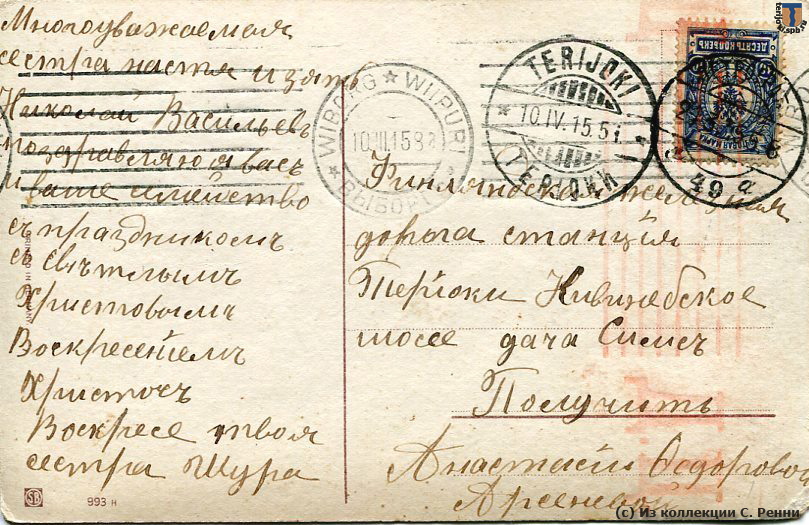 Многоуважаемая
сестра настя и зять
Николай Васильевъ
поздравляю я васъ
и ваше семейство
съ праздникомъ
съ свѣтлымъ
Христовымъ
Воскресенiемъ
Христосъ
Воскресе твоя
сестра Шура
993 н
SB
WIBORG ★ WIIPURI
10.III.15 8
ВЫБОРГЪ
TERIJOKI
10.IV.15.5
ТЕРIОКИ
49 a
ДЕСЯТЬ КОПѢЕКЪ
Финляндская железная
дорога станция
Терiоки
шосе дача Симсъ
Получить
Анастасiи Федоровой
Арсеневой
terijoki.spb.ru
(c) Из коллекции С. Ренни